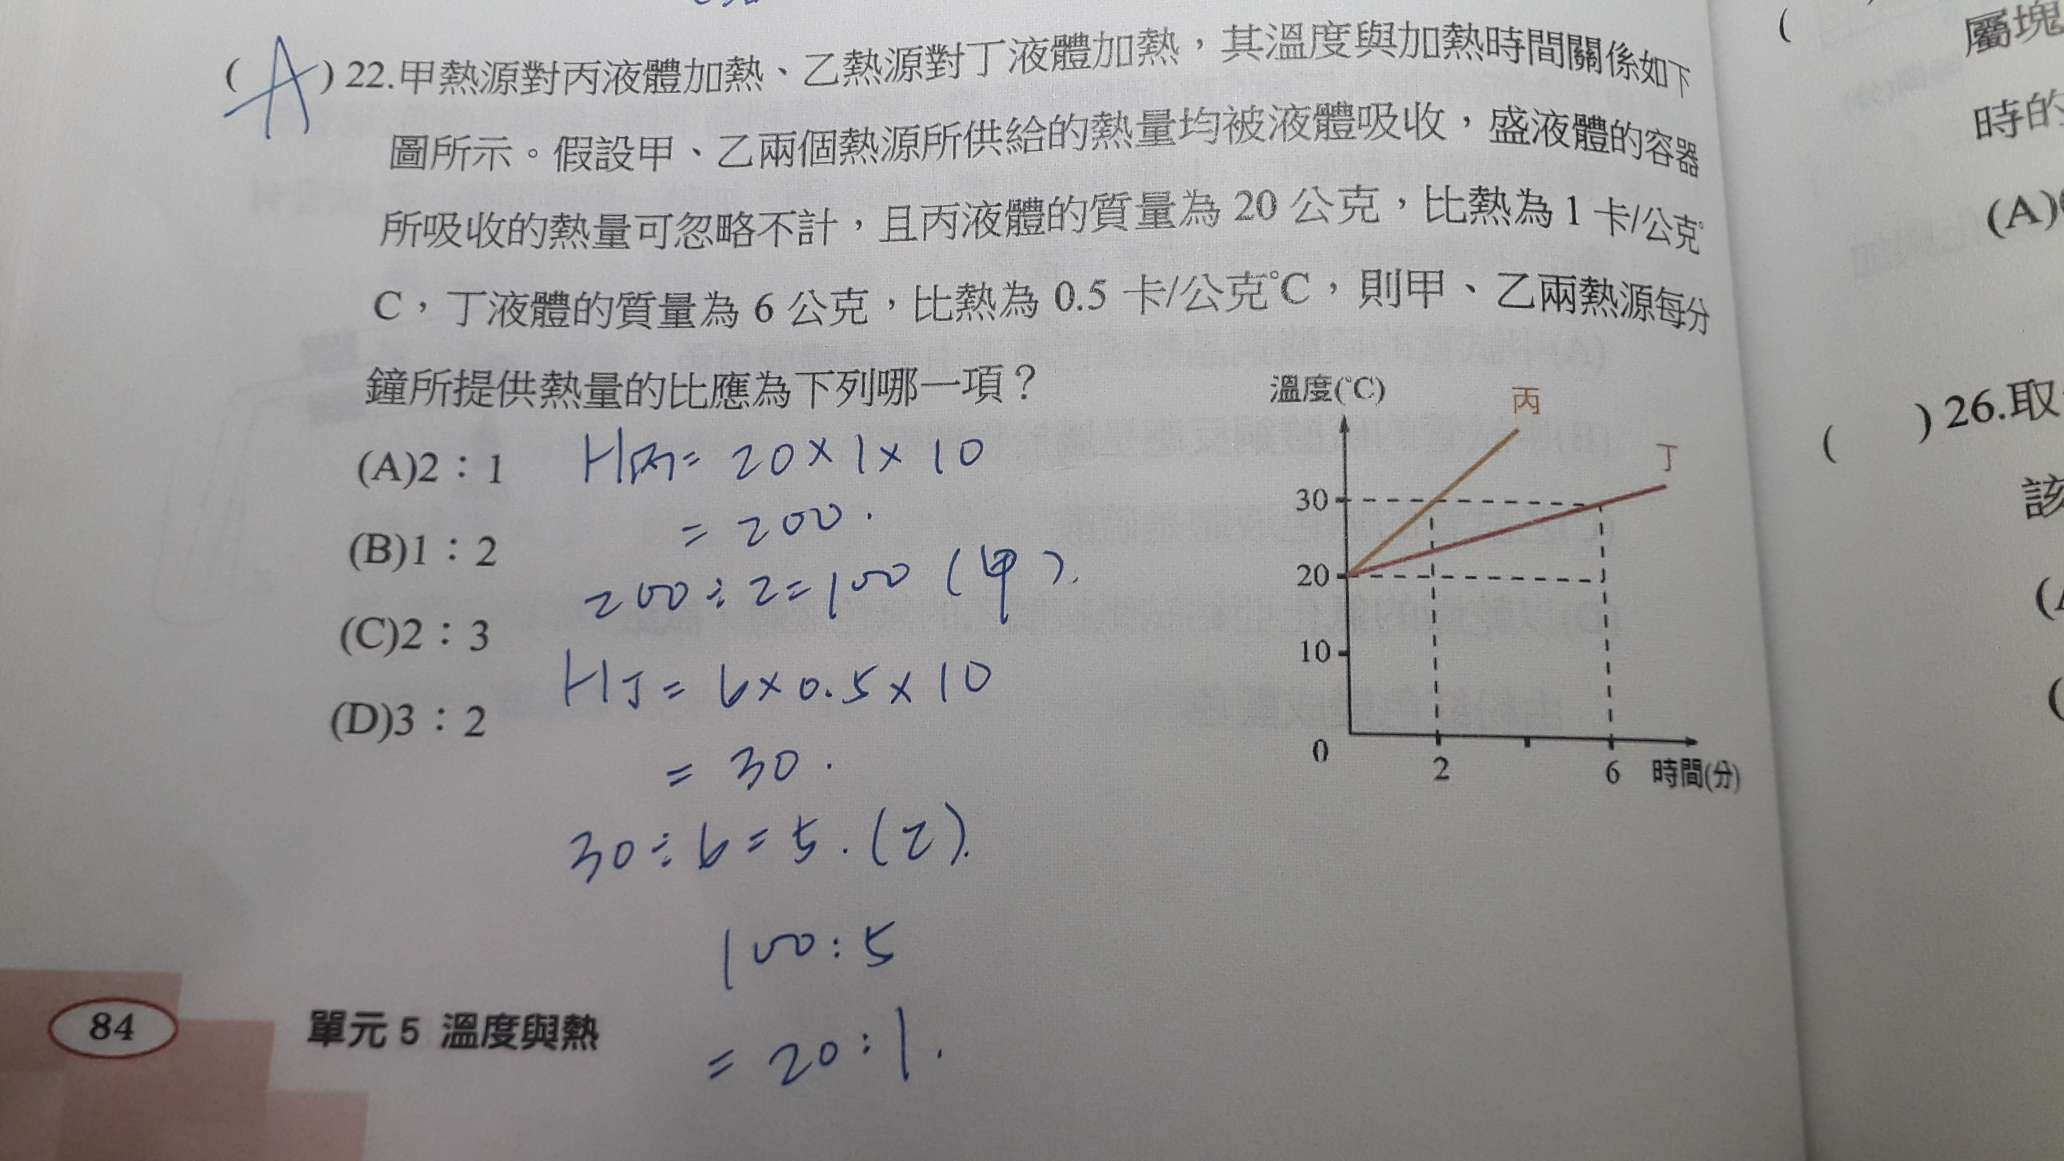 ( A ) 22.甲熱源對丙液體加熱、乙熱源對丁液體加熱,其溫度與加熱時間關係如下
圖所示。假設甲、乙兩個熱源所供給的熱量均被液體吸收,盛液體的容器
所吸收的熱量可忽略不計,且丙液體的質量為 20 公克,比熱為 1 卡/公克°
C,丁液體的質量為 6 公克,比熱為 0.5 卡/公克℃,則甲、乙兩熱源每分
鐘所提供熱量的比應為下列哪一項?
(A)2:1
(B)1:2
(C)2:3
(D)3:2
H丙= 20×1×10
= 200.
200÷2=100 (甲).
H丁= 6×0.5×10
= 30.
30÷6=5.(乙).
100:5
= 20:1.
溫度(℃)
丙
丁
30
20
10
0
2
6
時間(分)
84
單元 5 溫度與熱
(
屬塊
時的
(A)
( ) 26.取
該
(
(